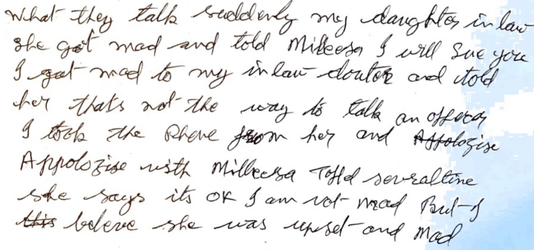 What they talk suddenly my daughter in law
she got mad and told Millessa I will sue you
I got mad to my in law doutor and told
her thats not the way to talk an officer
I took the Phone from her and Appologise
Appologise with Millessa Told severaltime
she says its OK I am not mad But I
this believe she was upset and mad